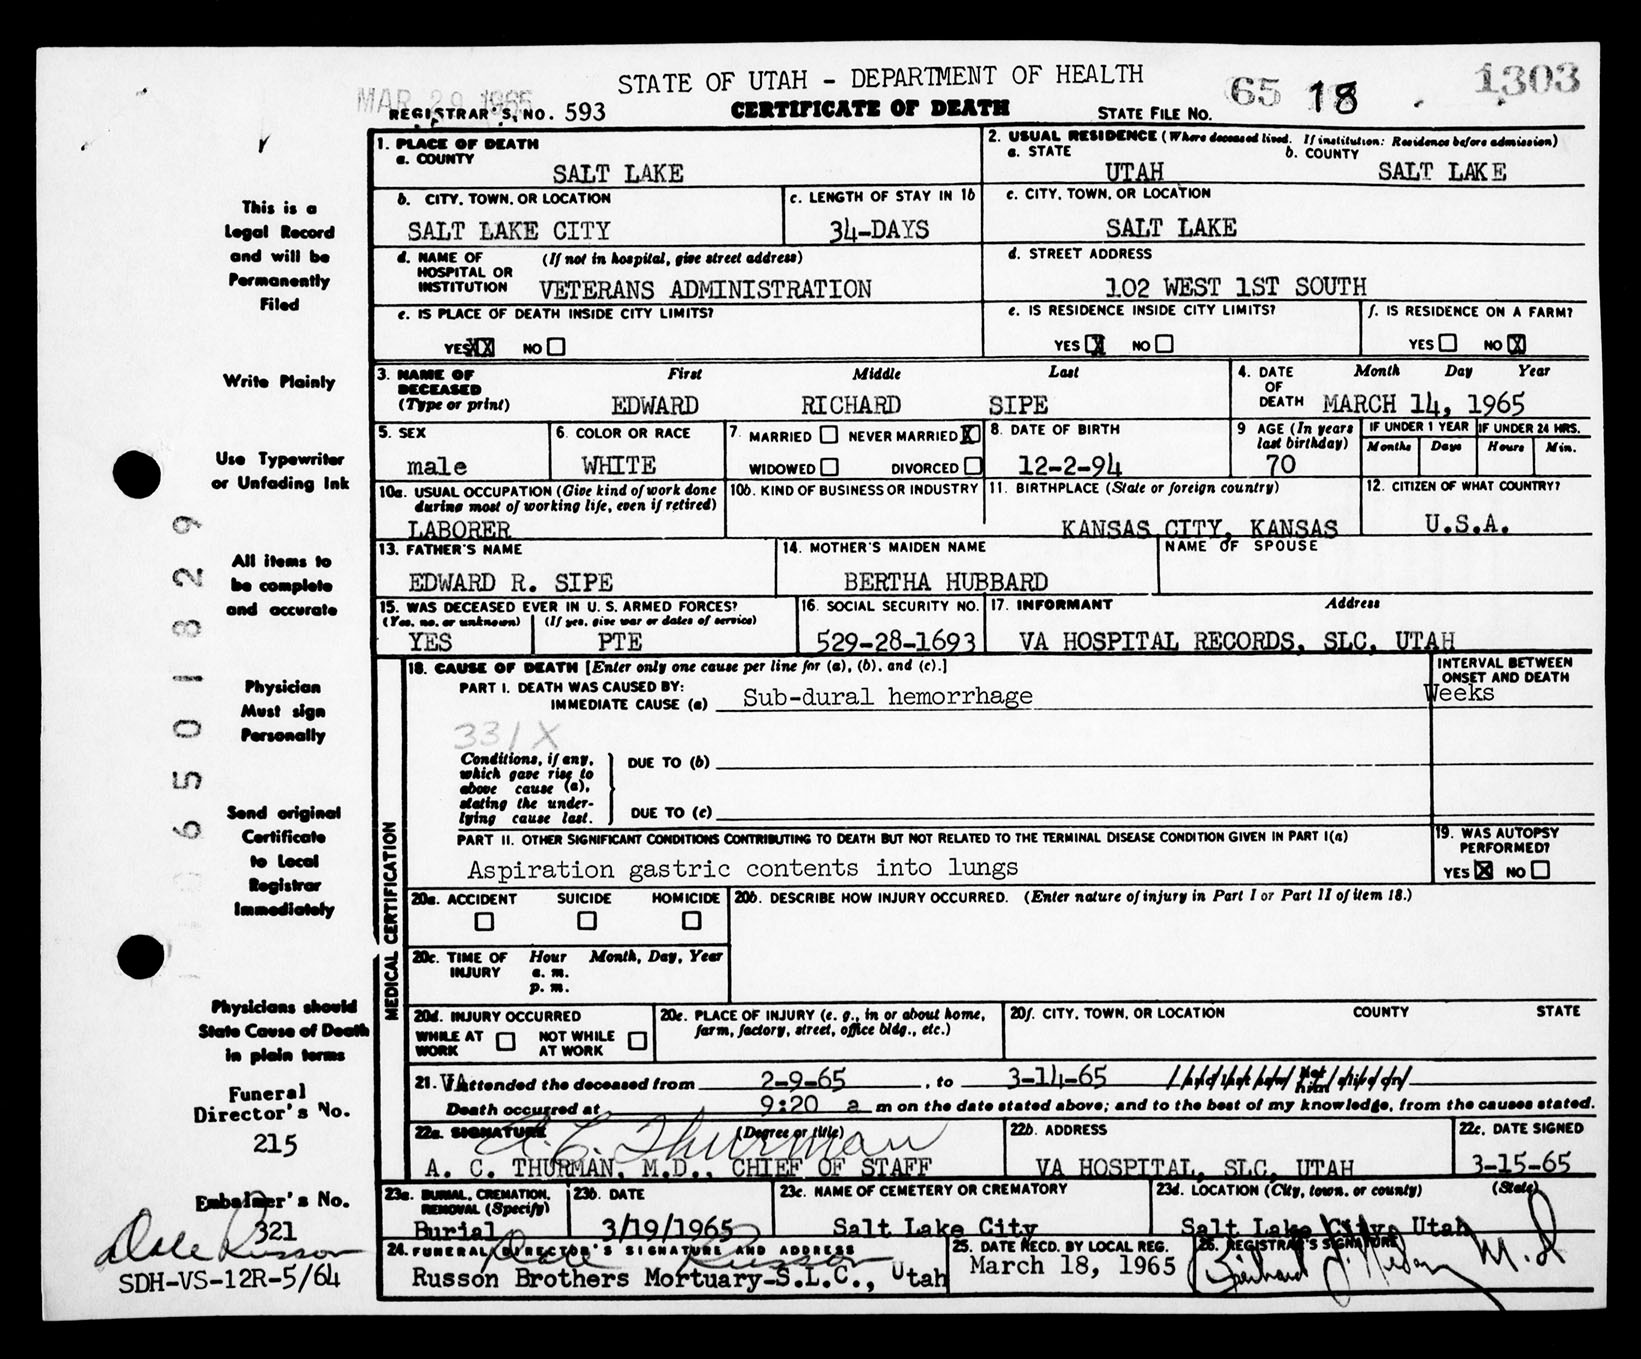 STATE OF UTAH - DEPARTMENT OF HEALTH
MAR 29 1965
REGISTRAR'S NO. 593
CERTIFICATE OF DEATH
STATE FILE NO. 65 18 1303
This is a
Legal Record
and will be
Permanently
Filed
Write Plainly
Use Typewriter
or Unfading Ink
All items to
be complete
and accurate
Physician
Must sign
Personally
Send original
Certificate
to Local
Registrar
Immediately
Physicians should
State Cause of Death
in plain terms
Funeral
Director's No.
215
Embalmer's No.
321
Dale Russon
SDH-VS-12R-5/64
1. PLACE OF DEATH
a. COUNTY
SALT LAKE
2. USUAL RESIDENCE (Where deceased lived. If institution: Residence before admission)
a. STATE
UTAH
b. COUNTY
SALT LAKE
b. CITY, TOWN, OR LOCATION
SALT LAKE CITY
c. LENGTH OF STAY IN 1b
34-DAYS
c. CITY, TOWN, OR LOCATION
SALT LAKE
d. NAME OF HOSPITAL OR INSTITUTION (If not in hospital, give street address)
VETERANS ADMINISTRATION
d. STREET ADDRESS
102 WEST 1ST SOUTH
e. IS PLACE OF DEATH INSIDE CITY LIMITS?
YES XX NO
e. IS RESIDENCE INSIDE CITY LIMITS?
YES X NO
f. IS RESIDENCE ON A FARM?
YES NO X
3. NAME OF DECEASED (Type or print)
First Middle Last
EDWARD RICHARD SIPE
4. DATE OF DEATH
Month Day Year
MARCH 14, 1965
5. SEX
male
6. COLOR OR RACE
WHITE
7. MARRIED NEVER MARRIED X
WIDOWED DIVORCED
8. DATE OF BIRTH
12-2-94
9 AGE (In years last birthday)
70
IF UNDER 1 YEAR
Months Days
IF UNDER 24 HRS.
Hours Min.
10a. USUAL OCCUPATION (Give kind of work done during most of working life, even if retired)
LABORER
10b. KIND OF BUSINESS OR INDUSTRY
11. BIRTHPLACE (State or foreign country)
KANSAS CITY, KANSAS
12. CITIZEN OF WHAT COUNTRY?
U.S.A.
13. FATHER'S NAME
EDWARD R. SIPE
14. MOTHER'S MAIDEN NAME
BERTHA HUBBARD
NAME OF SPOUSE
15. WAS DECEASED EVER IN U. S. ARMED FORCES?
(Yes, no, or unknown) (If yes, give war or dates of service)
YES PTE
16. SOCIAL SECURITY NO.
529-28-1693
17. INFORMANT Address
VA HOSPITAL RECORDS, SLC, UTAH
MEDICAL CERTIFICATION
18. CAUSE OF DEATH [Enter only one cause per line for (a), (b), and (c).]
PART I. DEATH WAS CAUSED BY:
IMMEDIATE CAUSE (a) Sub-dural hemorrhage
INTERVAL BETWEEN ONSET AND DEATH
Weeks
331X
Conditions, if any, which gave rise to above cause (a), stating the underlying cause last.
DUE TO (b)
DUE TO (c)
PART II. OTHER SIGNIFICANT CONDITIONS CONTRIBUTING TO DEATH BUT NOT RELATED TO THE TERMINAL DISEASE CONDITION GIVEN IN PART I(a)
Aspiration gastric contents into lungs
19. WAS AUTOPSY PERFORMED?
YES X NO
20a. ACCIDENT SUICIDE HOMICIDE
20b. DESCRIBE HOW INJURY OCCURRED. (Enter nature of injury in Part I or Part II of item 18.)
20c. TIME OF INJURY
Hour Month, Day, Year
a. m.
p. m.
20d. INJURY OCCURRED
WHILE AT WORK NOT WHILE AT WORK
20e. PLACE OF INJURY (e. g., in or about home, farm, factory, street, office bldg., etc.)
20f. CITY, TOWN, OR LOCATION COUNTY STATE
21. VA attended the deceased from 2-9-65, to 3-14-65
Death occurred at 9:20 a m on the date stated above; and to the best of my knowledge, from the causes stated.
22a. SIGNATURE (Degree or title)
A. C. Thurman
A. C. THURMAN, M.D., CHIEF OF STAFF
22b. ADDRESS
VA HOSPITAL, SLC, UTAH
22c. DATE SIGNED
3-15-65
23a. BURIAL, CREMATION, REMOVAL (Specify)
Burial
23b. DATE
3/19/1965
23c. NAME OF CEMETERY OR CREMATORY
Salt Lake City
23d. LOCATION (City, town, or county) (State)
Salt Lake City, Utah
24. FUNERAL DIRECTOR'S SIGNATURE AND ADDRESS
Dale Russon
Russon Brothers Mortuary-S.L.C., Utah
25. DATE RECD. BY LOCAL REG.
March 18, 1965
26. REGISTRAR'S SIGNATURE
M D
0650 1829